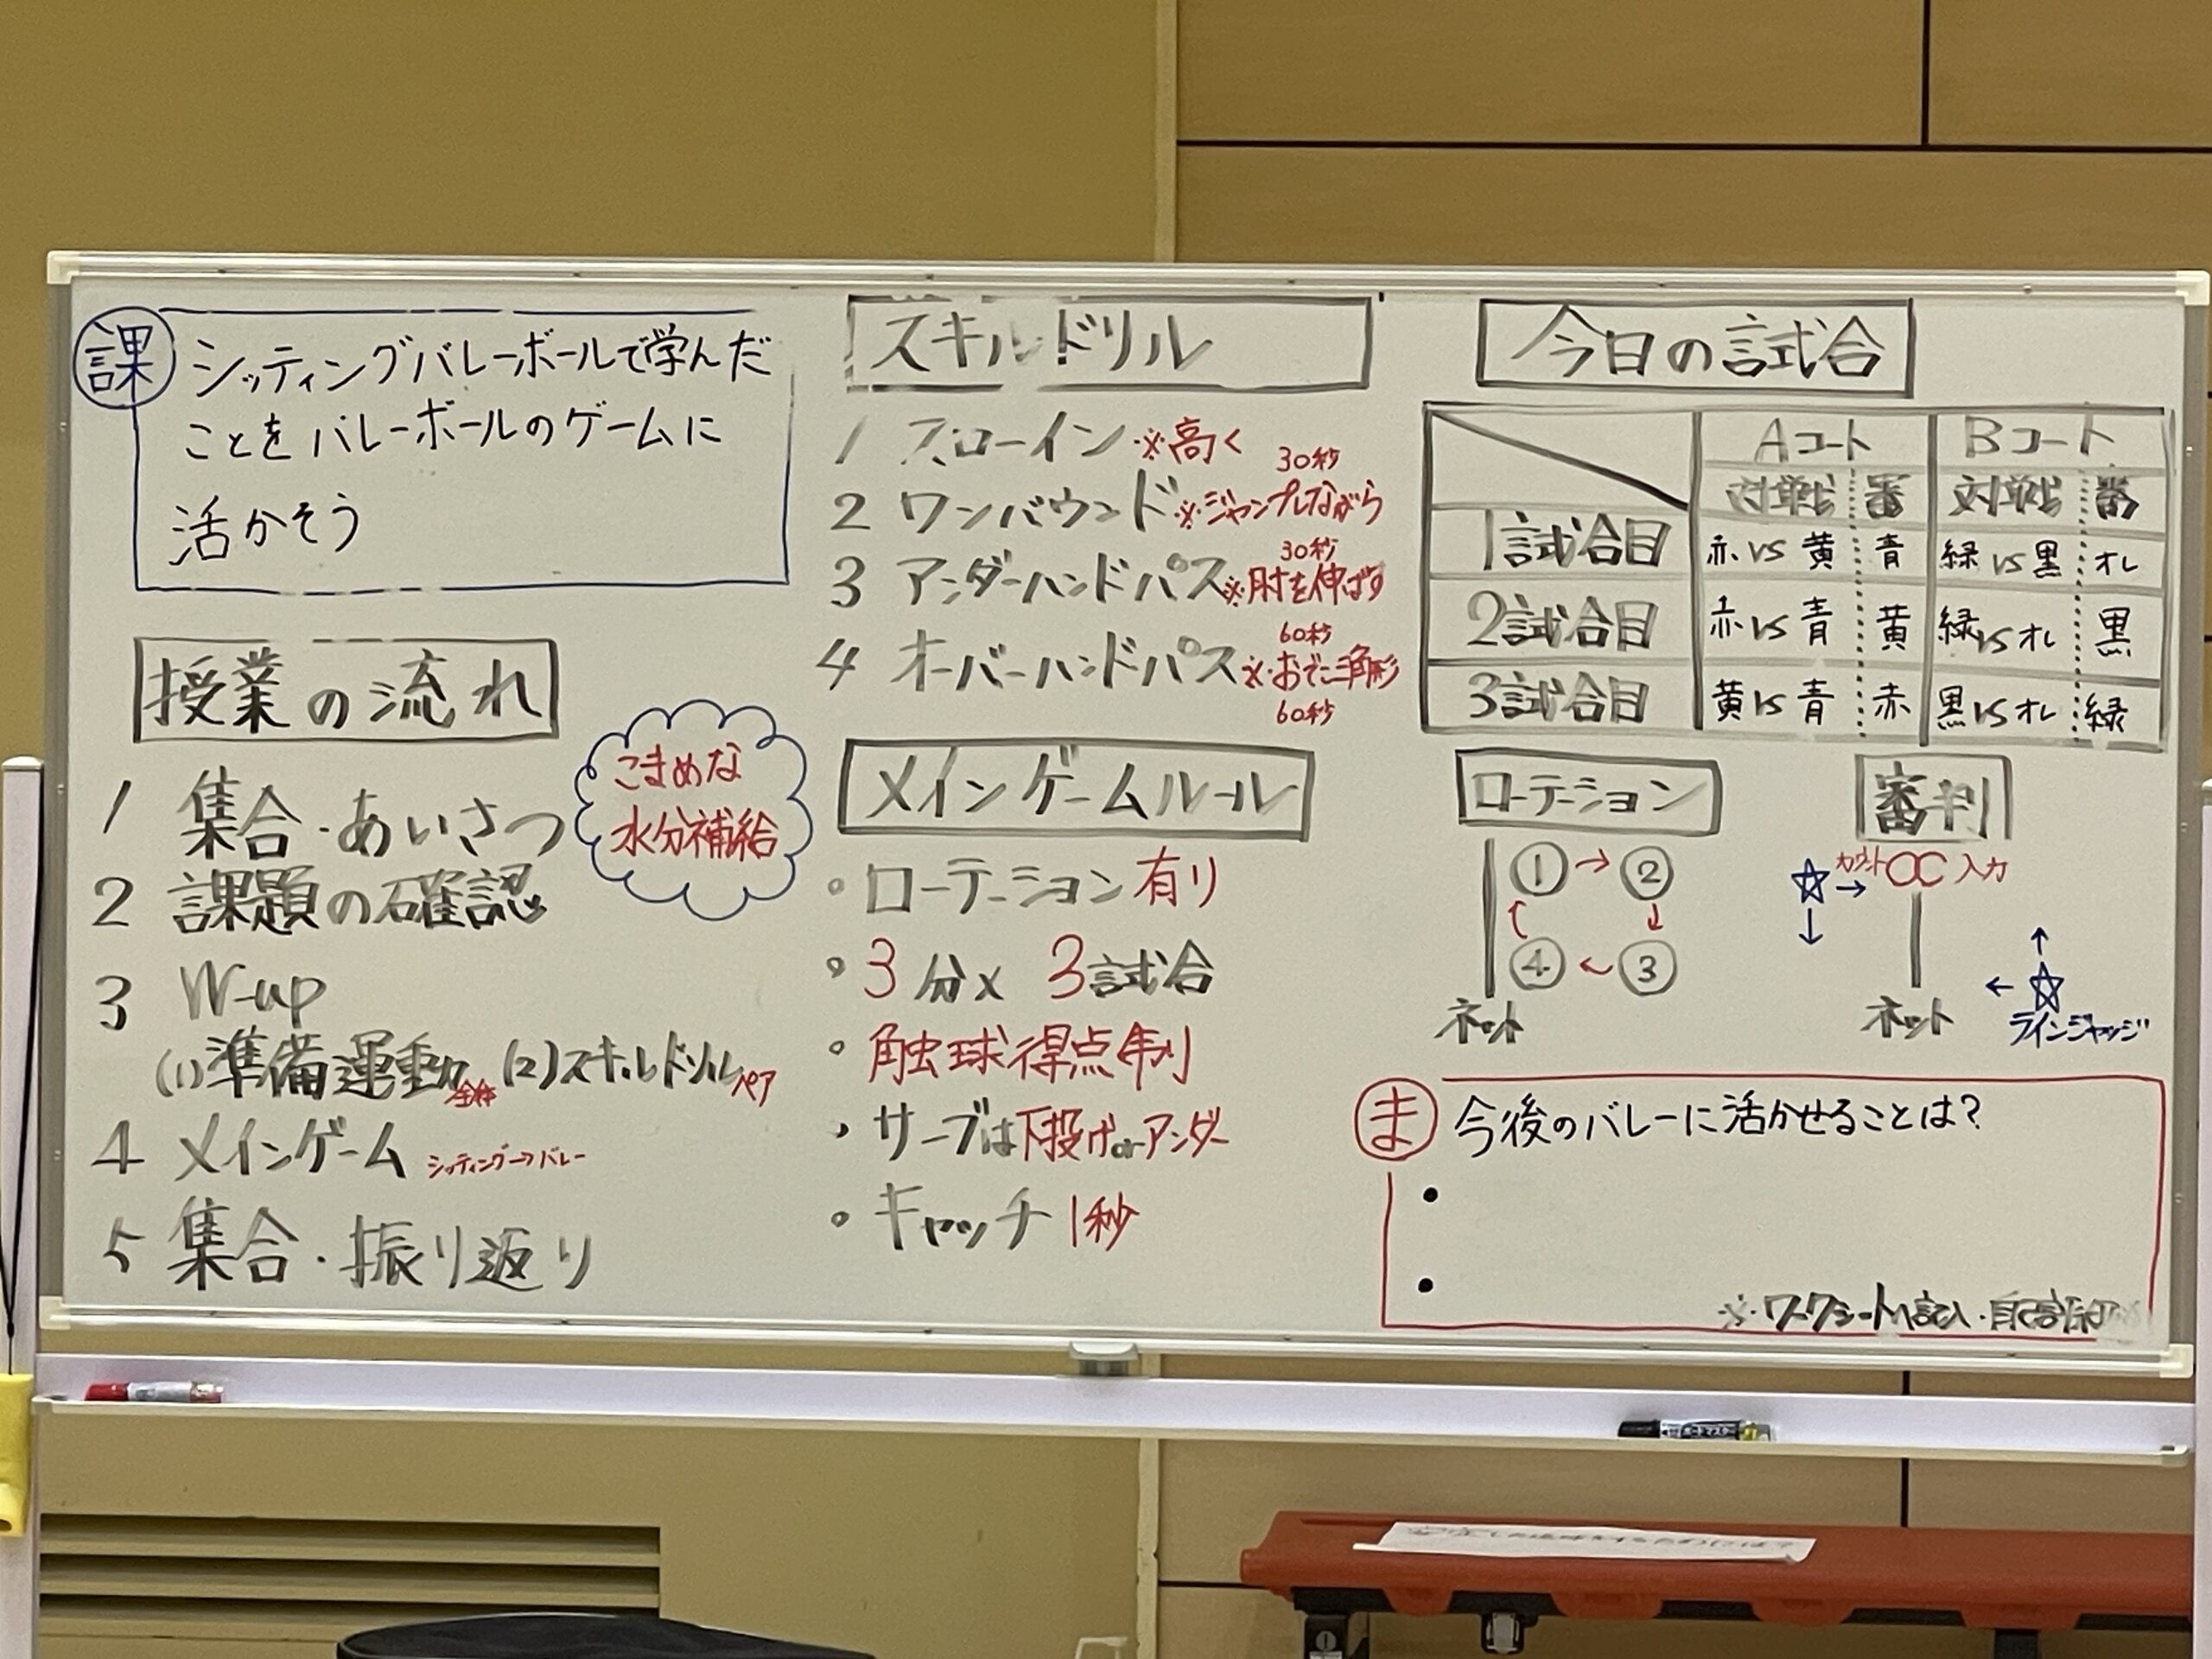 課
シッティングバレーボールで学んだ
ことをバレーボールのゲームに
活かそう
授業の流れ
1 集合・あいさつ
2 課題の確認
3 W-up
(1)準備運動 全体 (2)スキルドリル ペア
4 メインゲーム シッティング→バレー
5 集合・振り返り
こまめな
水分補給
スキルドリル
1 スローイン ※高く
30秒
2 ワンバウンド ※ジャンプしながら
30秒
3 アンダーハンドパス ※肘を伸ばす
60秒
4 オーバーハンドパス ※おでこ三角形
60秒
メインゲームルール
・ローテーション有り
・3分×3試合
・触球得点制
・サーブは下投げorアンダー
・キャッチ1秒
今日の試合
Aコート Bコート
対戦 審 対戦 審
1試合目 赤 vs 黄 青 緑 vs 黒 オレ
2試合目 赤 vs 青 黄 緑 vs オレ 黒
3試合目 黄 vs 青 赤 黒 vs オレ 緑
ローテーション
① → ②
④ ← ③
ネット
審判
カウント 入力
ネット
ラインジャッジ
ま
今後のバレーに活かせることは?
※ワークシートへ記入・
ボードマスター